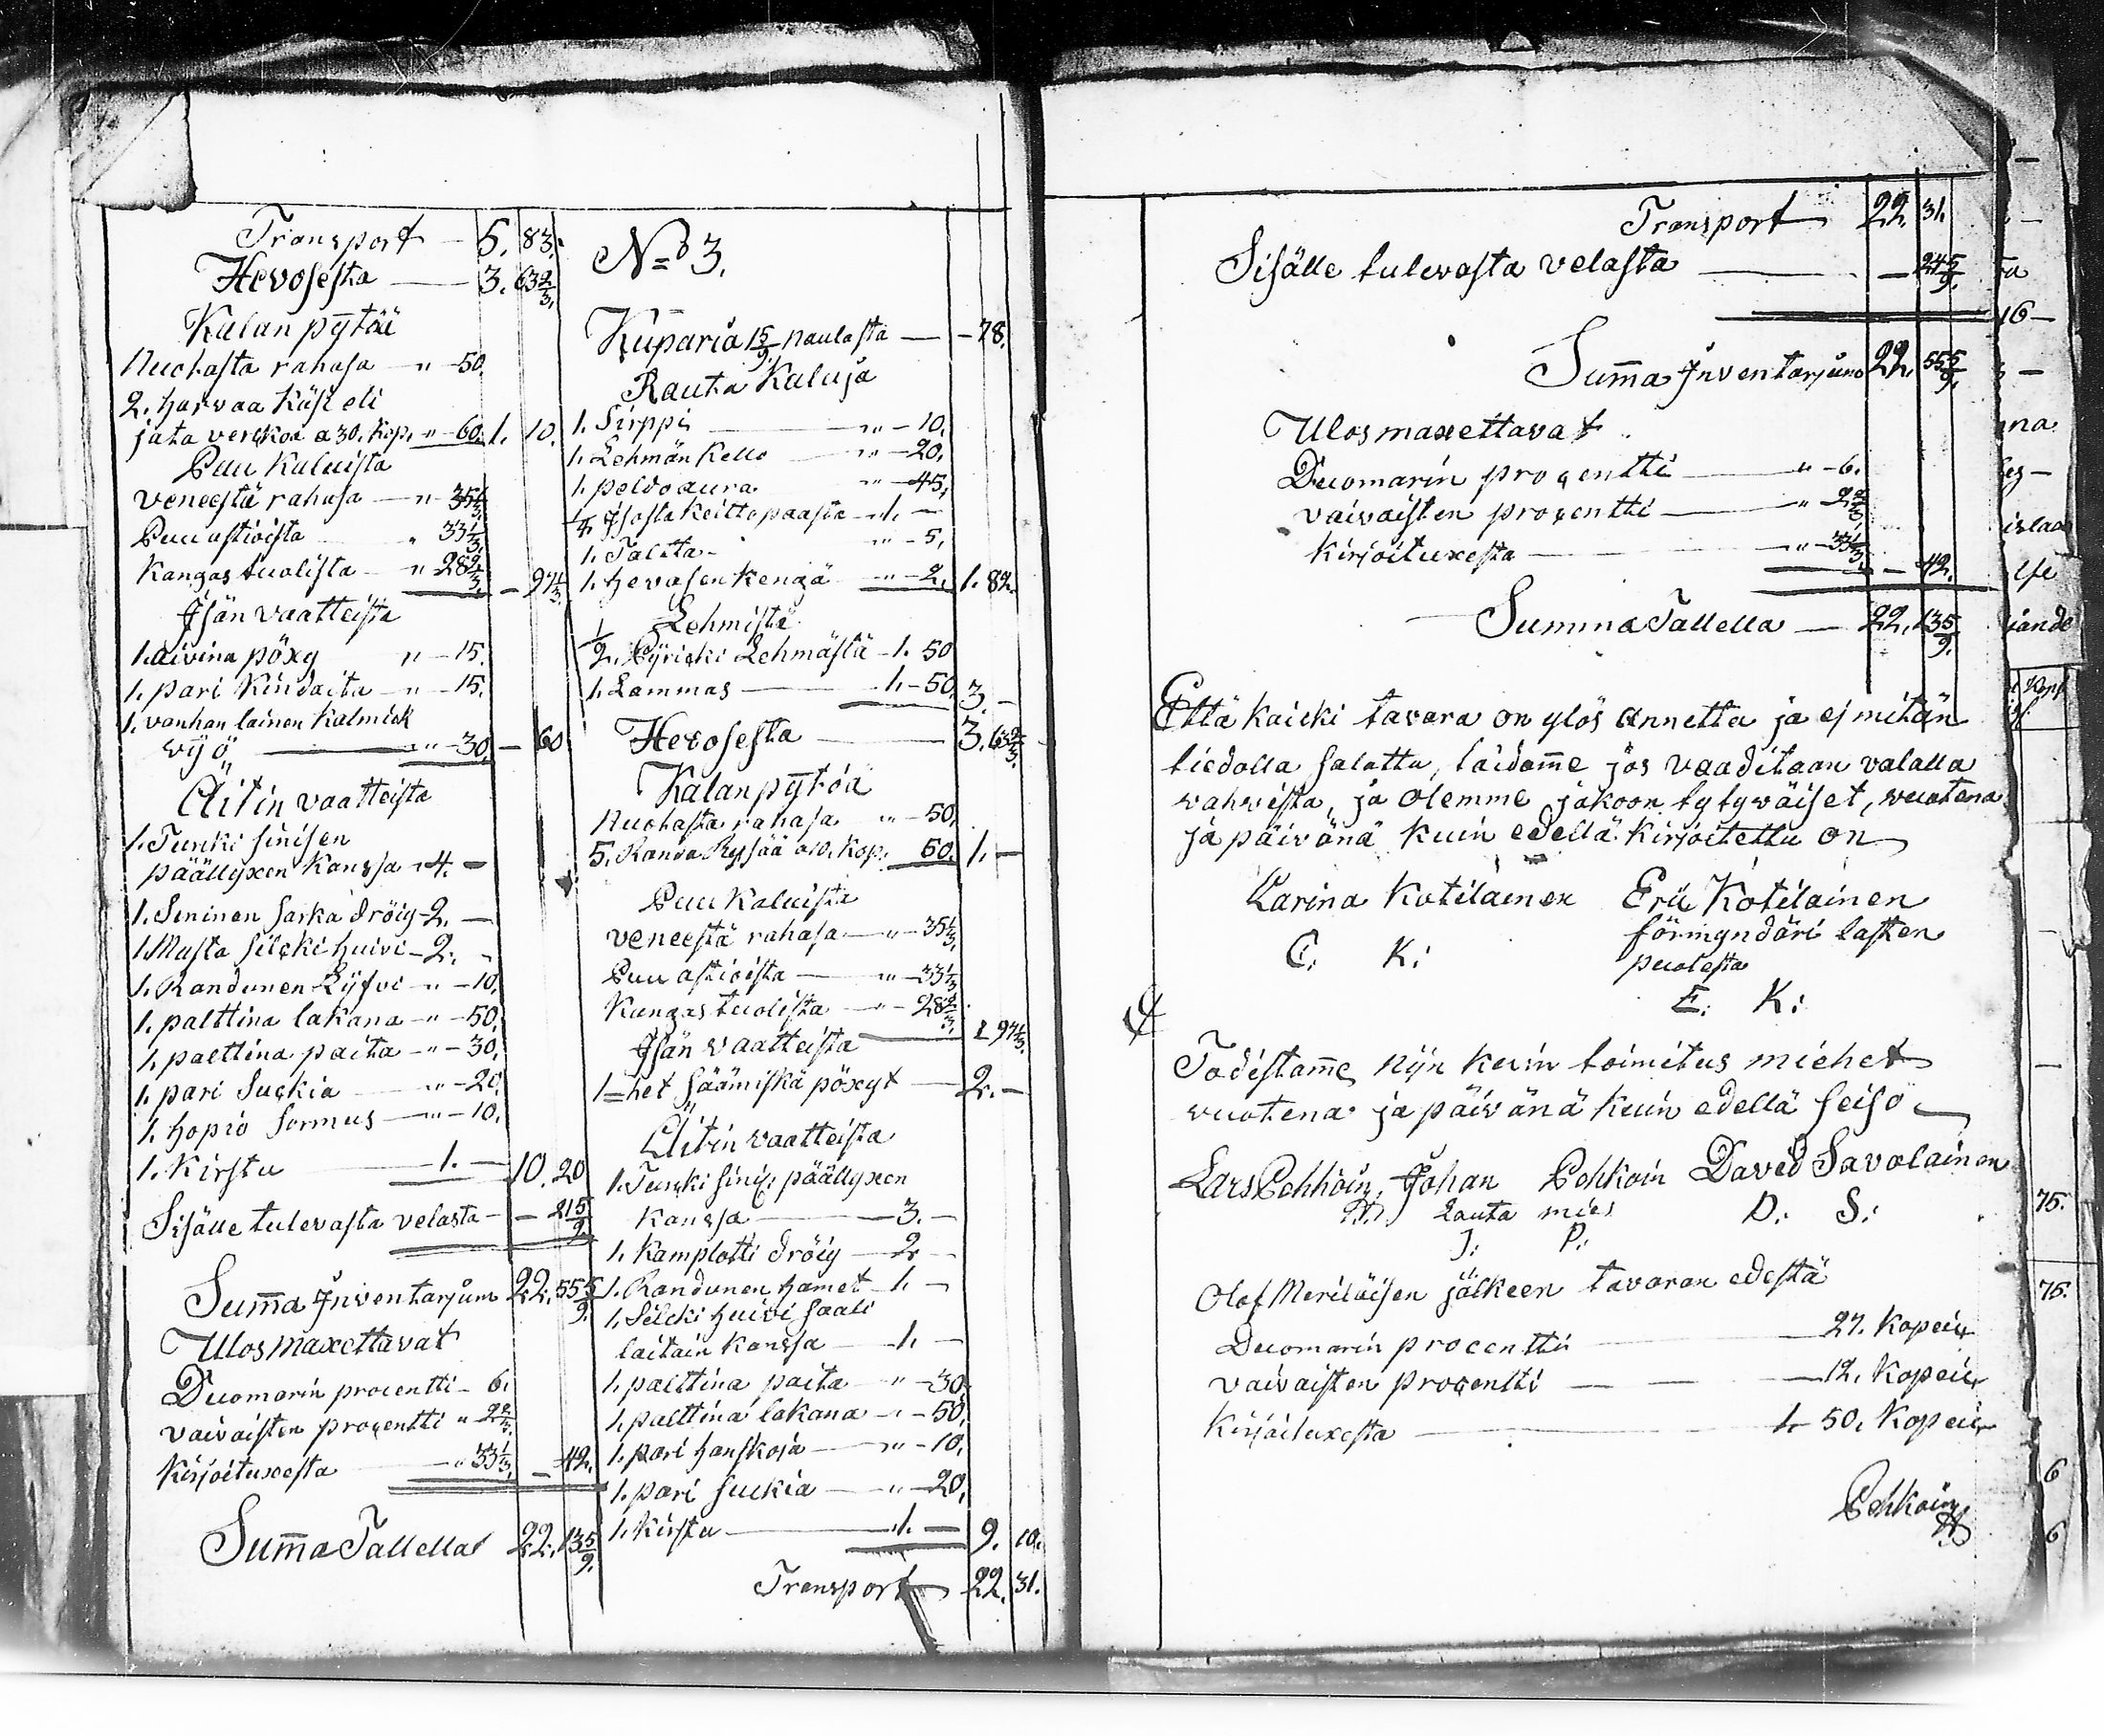 Transport — 5. 83.
Hevosesta — 3. 63 2/3.
Kalan pytöä
Nuotasta rahasa — " — 50.
2. harvaa Käsi eli
jata verckoa a 30. kop. " — 60. 1. 10.
Puu Kaluista
veneestä rahasa — " — 35 1/3.
Puu astioista " 33 1/3.
Kangas tuolista — " 28 2/3. — 97 1/3.
Isän vaatteista
1. aivina pöxy " — 15.
1. pari Kindaita — " — 15.
1. vanhan lainen Kalmick
vyö — " — 30. — 60
Äitin vaatteista
1. Turcki sinisen
päällyxen Kanssa — 4. —
1. Sininen sarka dröig — 2. —
1. Musta silcki huivi — 2. —
1. Randunen Lijfvi — " — 10.
1. palttina lakana — " — 50.
1. palttina paita — " — 30.
1. pari Suckia — " — 20.
1. hopio sormus — " — 10.
1. Kirstu — 1. — 10. 20
Sisälle tulevasta velasta — — 21 5/9.
Summa Inventarjum 22. 55 5/9.
Ulos maxettavat
Duomarin procentti — 6.
vaivaisten procentti " 2 2/3.
Kirjoituxesta — " 33 1/3. — 42.
Summa Tallella 22. 13 5/9.
No 3.
Kuparia 1 5/9 naulasta — — 78.
Rauta Kaluja
1. Sirppi — " — 10.
1. Lehmän Kello — " — 20.
1. peldo aura " — 45.
Isosta Keittopaasta — 1. —
1. Taltta — " — 5.
1. hevosen Kengä — " — 2. 1. 82.
Lehmistä
1/2. Pyricki Lehmästä — 1. 50
1. Lammas — 1. — 50. 3. —
Hevosesta — 3. 63 2/3.
Kalan pytöä
Nuotasta rahasa " — 50.
5. Randa Rysää a 10. kop. 50. 1. —
Puu Kaluista
veneestä rahasa — " — 35 1/3.
Puu astioista — " — 33 1/3.
Kangas tuolista — " — 28 2/3.
— 97 1/3.
Isän vaatteista
1=het säämiskä pöxyt — 2. —
Äitin vaatteista
1. Turcki sinis: päällyxen
Kanssa — 3. —
1. Kamplotti dröig — 2. —
1. Randunen hamet — 1. —
1. Silcki huivi saali
laitain Kanssa — 1. —
1. palttina paita — " — 30.
1. palttina lakana — " — 50.
1. pari hanskoja — " — 10.
1. pari Suckia — " — 20.
1. Kirstu — 1. — 9. 10.
Transport — 22. 31.
Transport 22. 31.
Sisälle tulevasta velasta — — 24 5/9.
Summa Inventarjum 22. 55 5/9.
Ulos maxettavat
Duomarin procentti — " — 6.
vaivaisten procentti — " 2 2/3.
Kirjoituxesta — " — 33 1/3. — 42.
Summa Tallella — 22. 13 5/9.
Että kaicki tavara on ylös annettu ja ej mitän
tiedolla salattu, taidamme jos vaaditaan valalla
vahvista, ja olemme jakoon tytyväiset, vuotena
ja päivänä kuin edellä kirjoitettu on
Karina Kotilainen Erik Kotilainen
förmyndäri lasten
C. K: puolesta
E. K:
Todistamme nijn kuin toimitus miehet
vuotena ja päivänä kuin edellä seiso
Lars Pehkoin, Johan Pehkoin David Savolainen
Lauta mies D: S:
J: P:
Olof Meriläisen jälkeen tavaran edestä
Duomarin procentti — 27. Kopeik
vaivaisten procentti — 12. Kopeik
Kirjoituxesta — 1. 50. Kopeik
Pehkoin